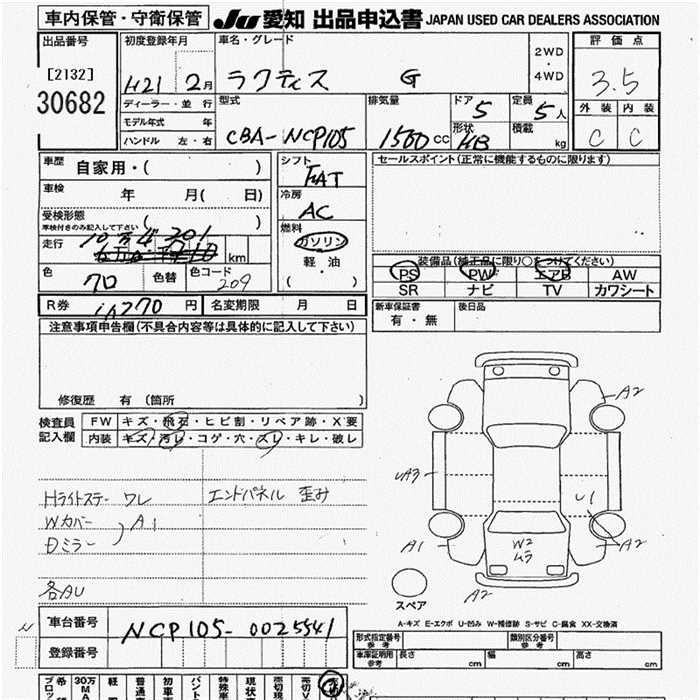 車内保管・守衛保管 JU 愛知 出品申込書 JAPAN USED CAR DEALERS ASSOCIATION
出品番号 初度登録年月 車名・グレード 評価点
[2132] H21 2月 ラクティス G 2WD・4WD 3.5
30682 ディーラー・並行 型式 排気量 ドア 5 定員 5人 外装 内装
モデル年式 年 CBA-NCP105 1500cc 形状 HB 積載 kg C C
ハンドル 左・右
車歴 自家用・( ) シフト FAT セールスポイント(正常に機能するものに限ります)
車検 年 月( 日) 冷房 AC
受検形態 ( )
車検付きのみ記入して下さい
燃料 ガソリン
走行 10万4201 km 軽油
( ・ )
装備品(純正品に限り○をつけてください)
色 クロ 色替 色コード 209
PS PW エアB AW
SR ナビ TV カワシート
R券 円 名変期限 月 日
新車保証書 有・無 後日品
注意事項申告欄(不具合内容等は具体的に記入して下さい)
修復歴 有 (箇所 )
検査員記入欄 FW キズ・飛石・ヒビ割・リペア跡・X要
内装 キズ・汚レ・コゲ・穴・スレ・キレ・破レ
Hライトステー ワレ エンドパネル 歪み
Wカバー
Dミラー ) A1
各AU
A2
A3
U1
A1
A2
W2
ムラ
A2
スペア
A-キズ E-エクボ U-凹み W-補修跡 S-サビ C-腐食 XX-交換済
車台番号 NCP105-0025541
登録番号
形式指定番号 参考 類別区分番号 参考
車庫証明用 参考 長さ cm 幅 cm 高さ cm
30万